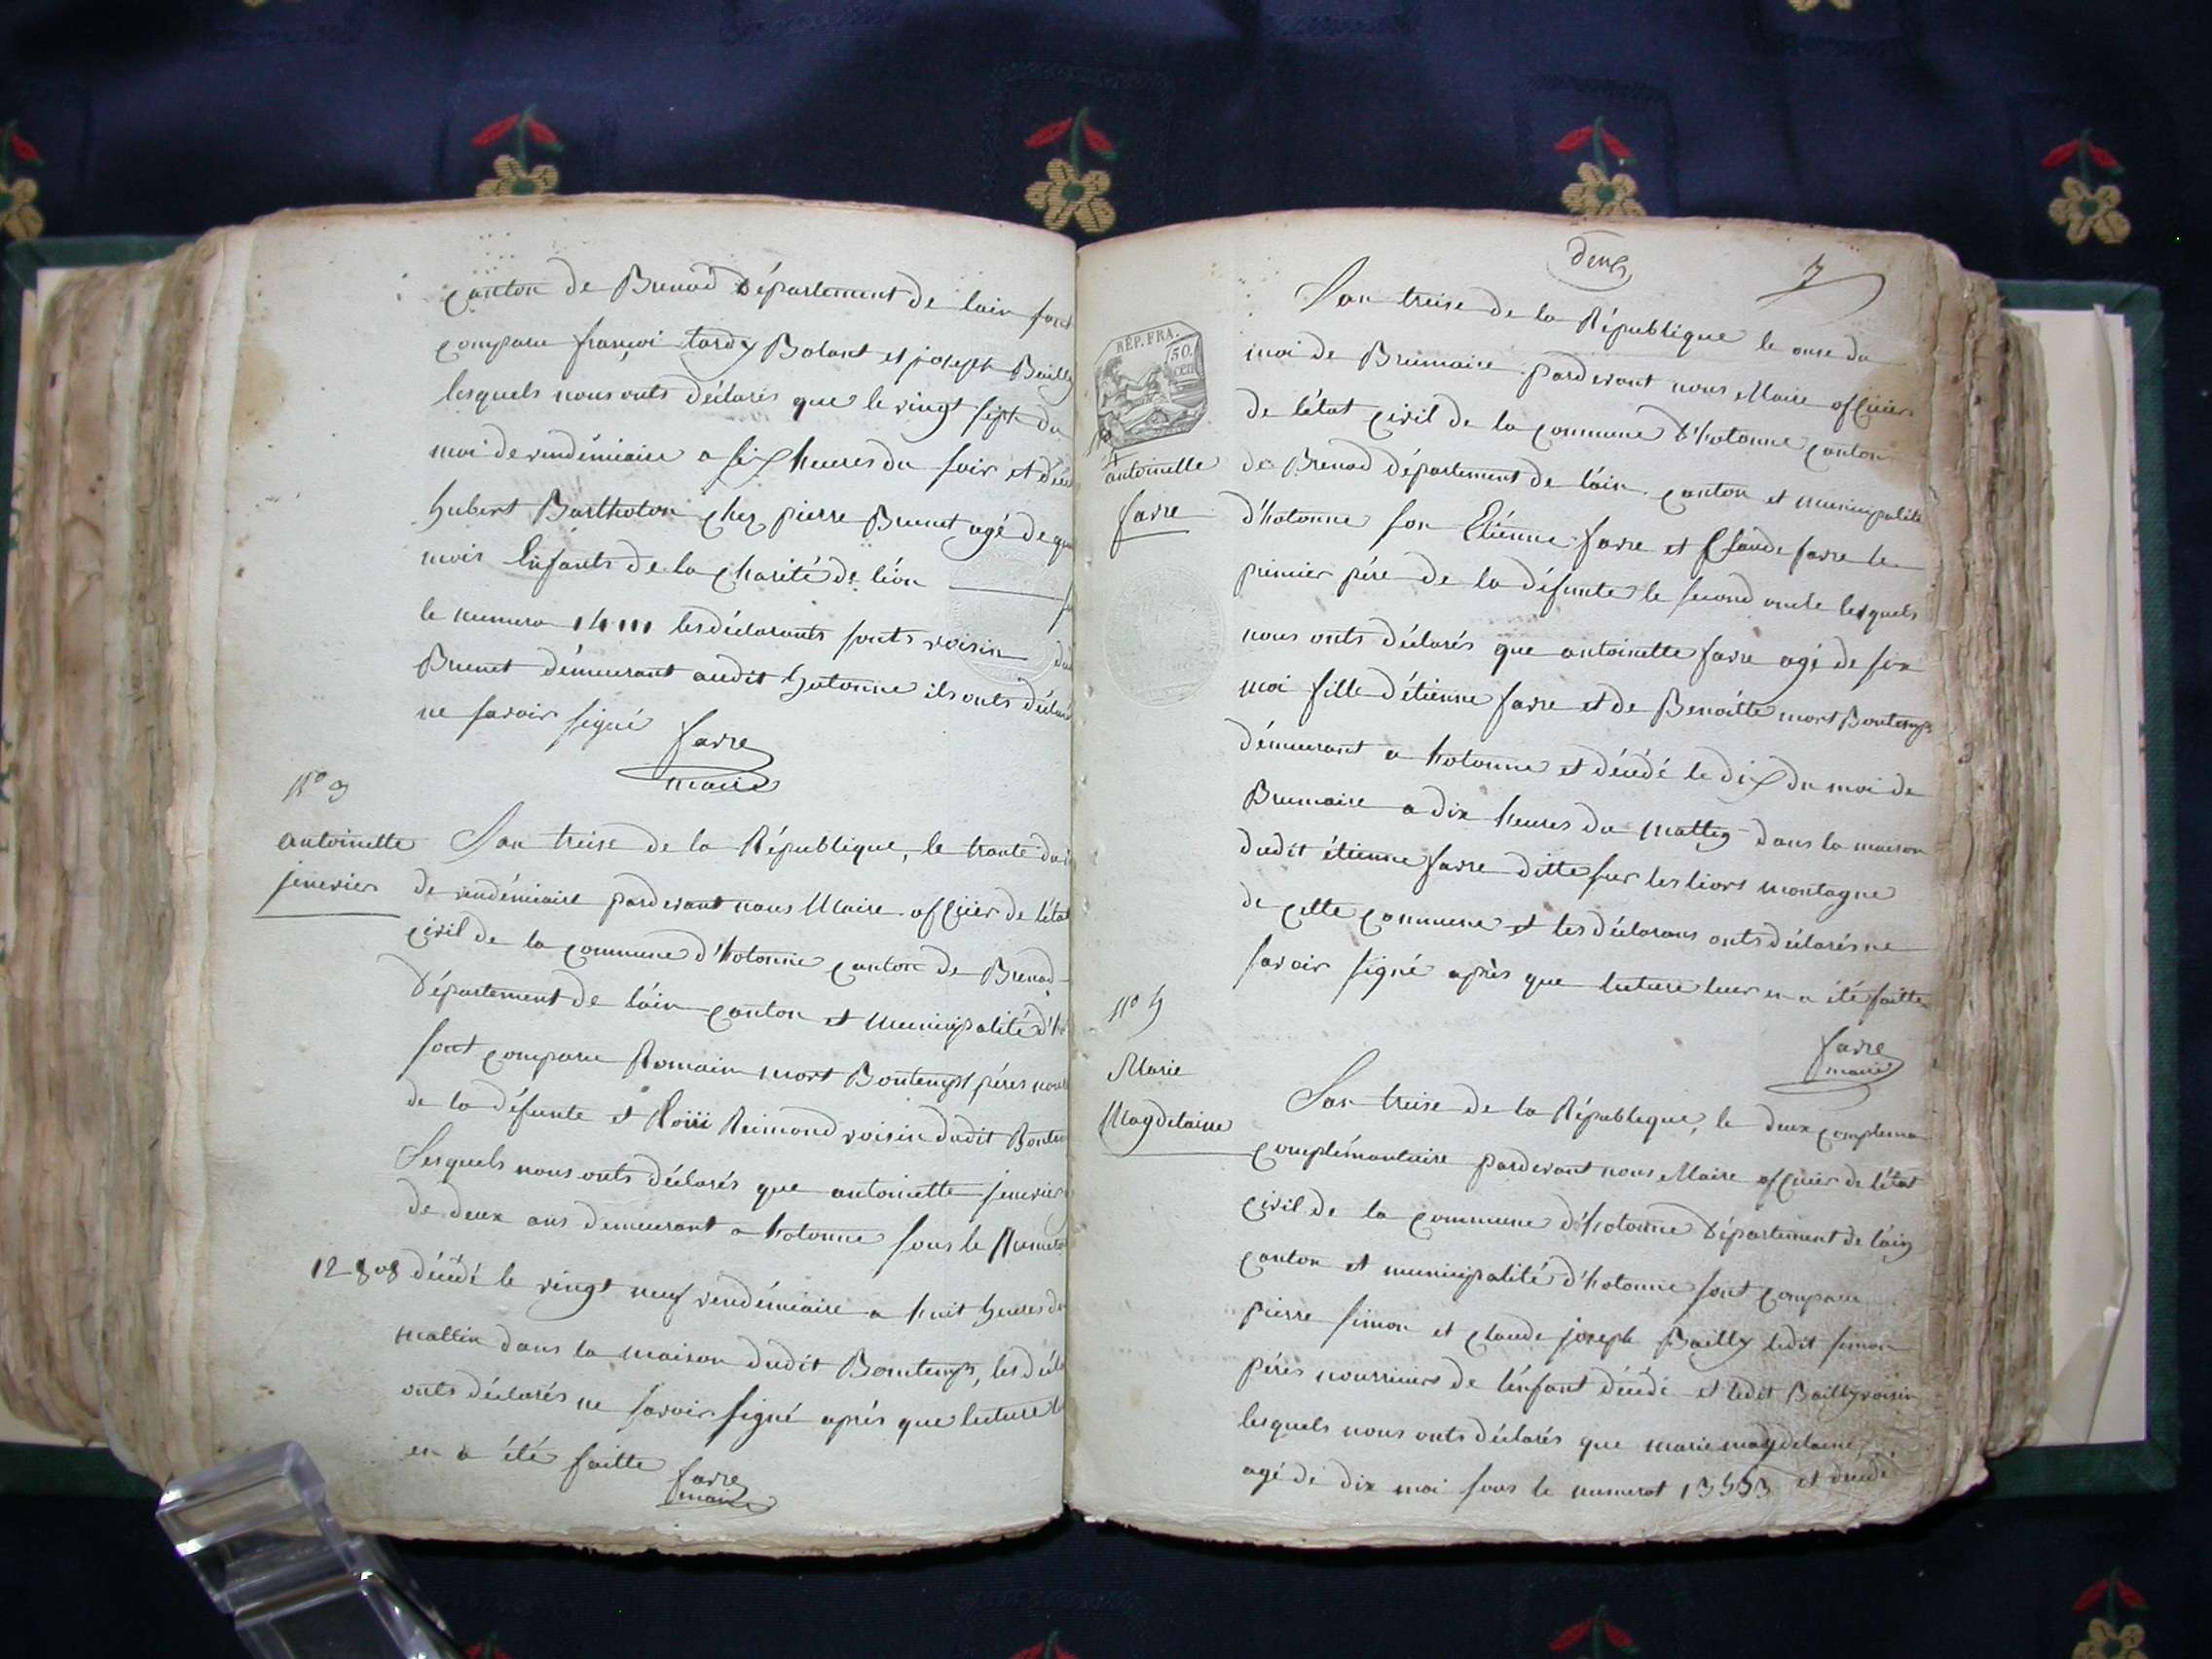 canton de Brenod département de lain sont
comparu françoi tardy Balant et joseph Bailly
lesquels nous onts déclarés que le vingt sept du
moi de vendémiaire a six heures du soir et décé
hubert Bartholon chez pierre Brunet agé de qua
mois Enfants de la charité de léon
le numero 1411 les déclarants sonts voisin du
Brunet démeurant audit hotonne ils onts déclaré
ne savoir signé
favre
maire
N° 3
antoinette
jenevier
Lan treise de la République, le trante du
de vendémiaire pardevant nous Maire officier de létat
civil de la commune d'hotonne canton de Brenod
Département de láin canton et municipalité d'ho
sont comparu Romain mort Bontemps péres nour
de la défunte et Reimond voisin dudit Bontem
Lesquels nous onts déclarés que antoinette jenevier
de deux ans demeurant a hotonne sous le Numero
12808 décédé le vingt neuf vendémiaire a huit heures du
mattin dans la maison dudit Bontemps, les décla
onts déclarés ne savoir signé aprés que lecture
en a été faitte
favre
maire
7
RÉP. FRA.
50.
CEN
4
antoinette
favre
Lan treise de la République le onse du
moi de Brumaire pardevant nous Maire officier
de létat civil de la commune d'hotonne canton
de Brenod département de láin canton et municipalité
d'hotonne son Etiénne favre et Claude favre le
prémier pére de la défunte le second oncle lesquels
nous onts déclarés que antoinette favre agé de six
moi fille d'étienne favre et de Benoitte mort Bontemps
démeurant a hotonne et décédé le dix du moi de
Brumaire a dix heures du matteg dans la maison
dudit étienne favre ditte sur les liors montagne
de cette commune et les déclarans onts déclarés ne
savoir signé aprés que lecture leur en a été faitte
favre
maire
N° 5
Marie
Magdelaine
Lan treise de la République, le deux complema
complémantaire pardevant nous Maire officier de létat
civil de la commune d'hotonne Département de láin
canton et municipalité d'hotonne sont comparu
pierre simon et claude joseph Bailly ledit simon
péres nourricier de lénfant décédé et ledit Bailly voisin
lesquels nous onts déclarés que marie magdelaine
agé de dix moi sous le numerot 13553 et décédé